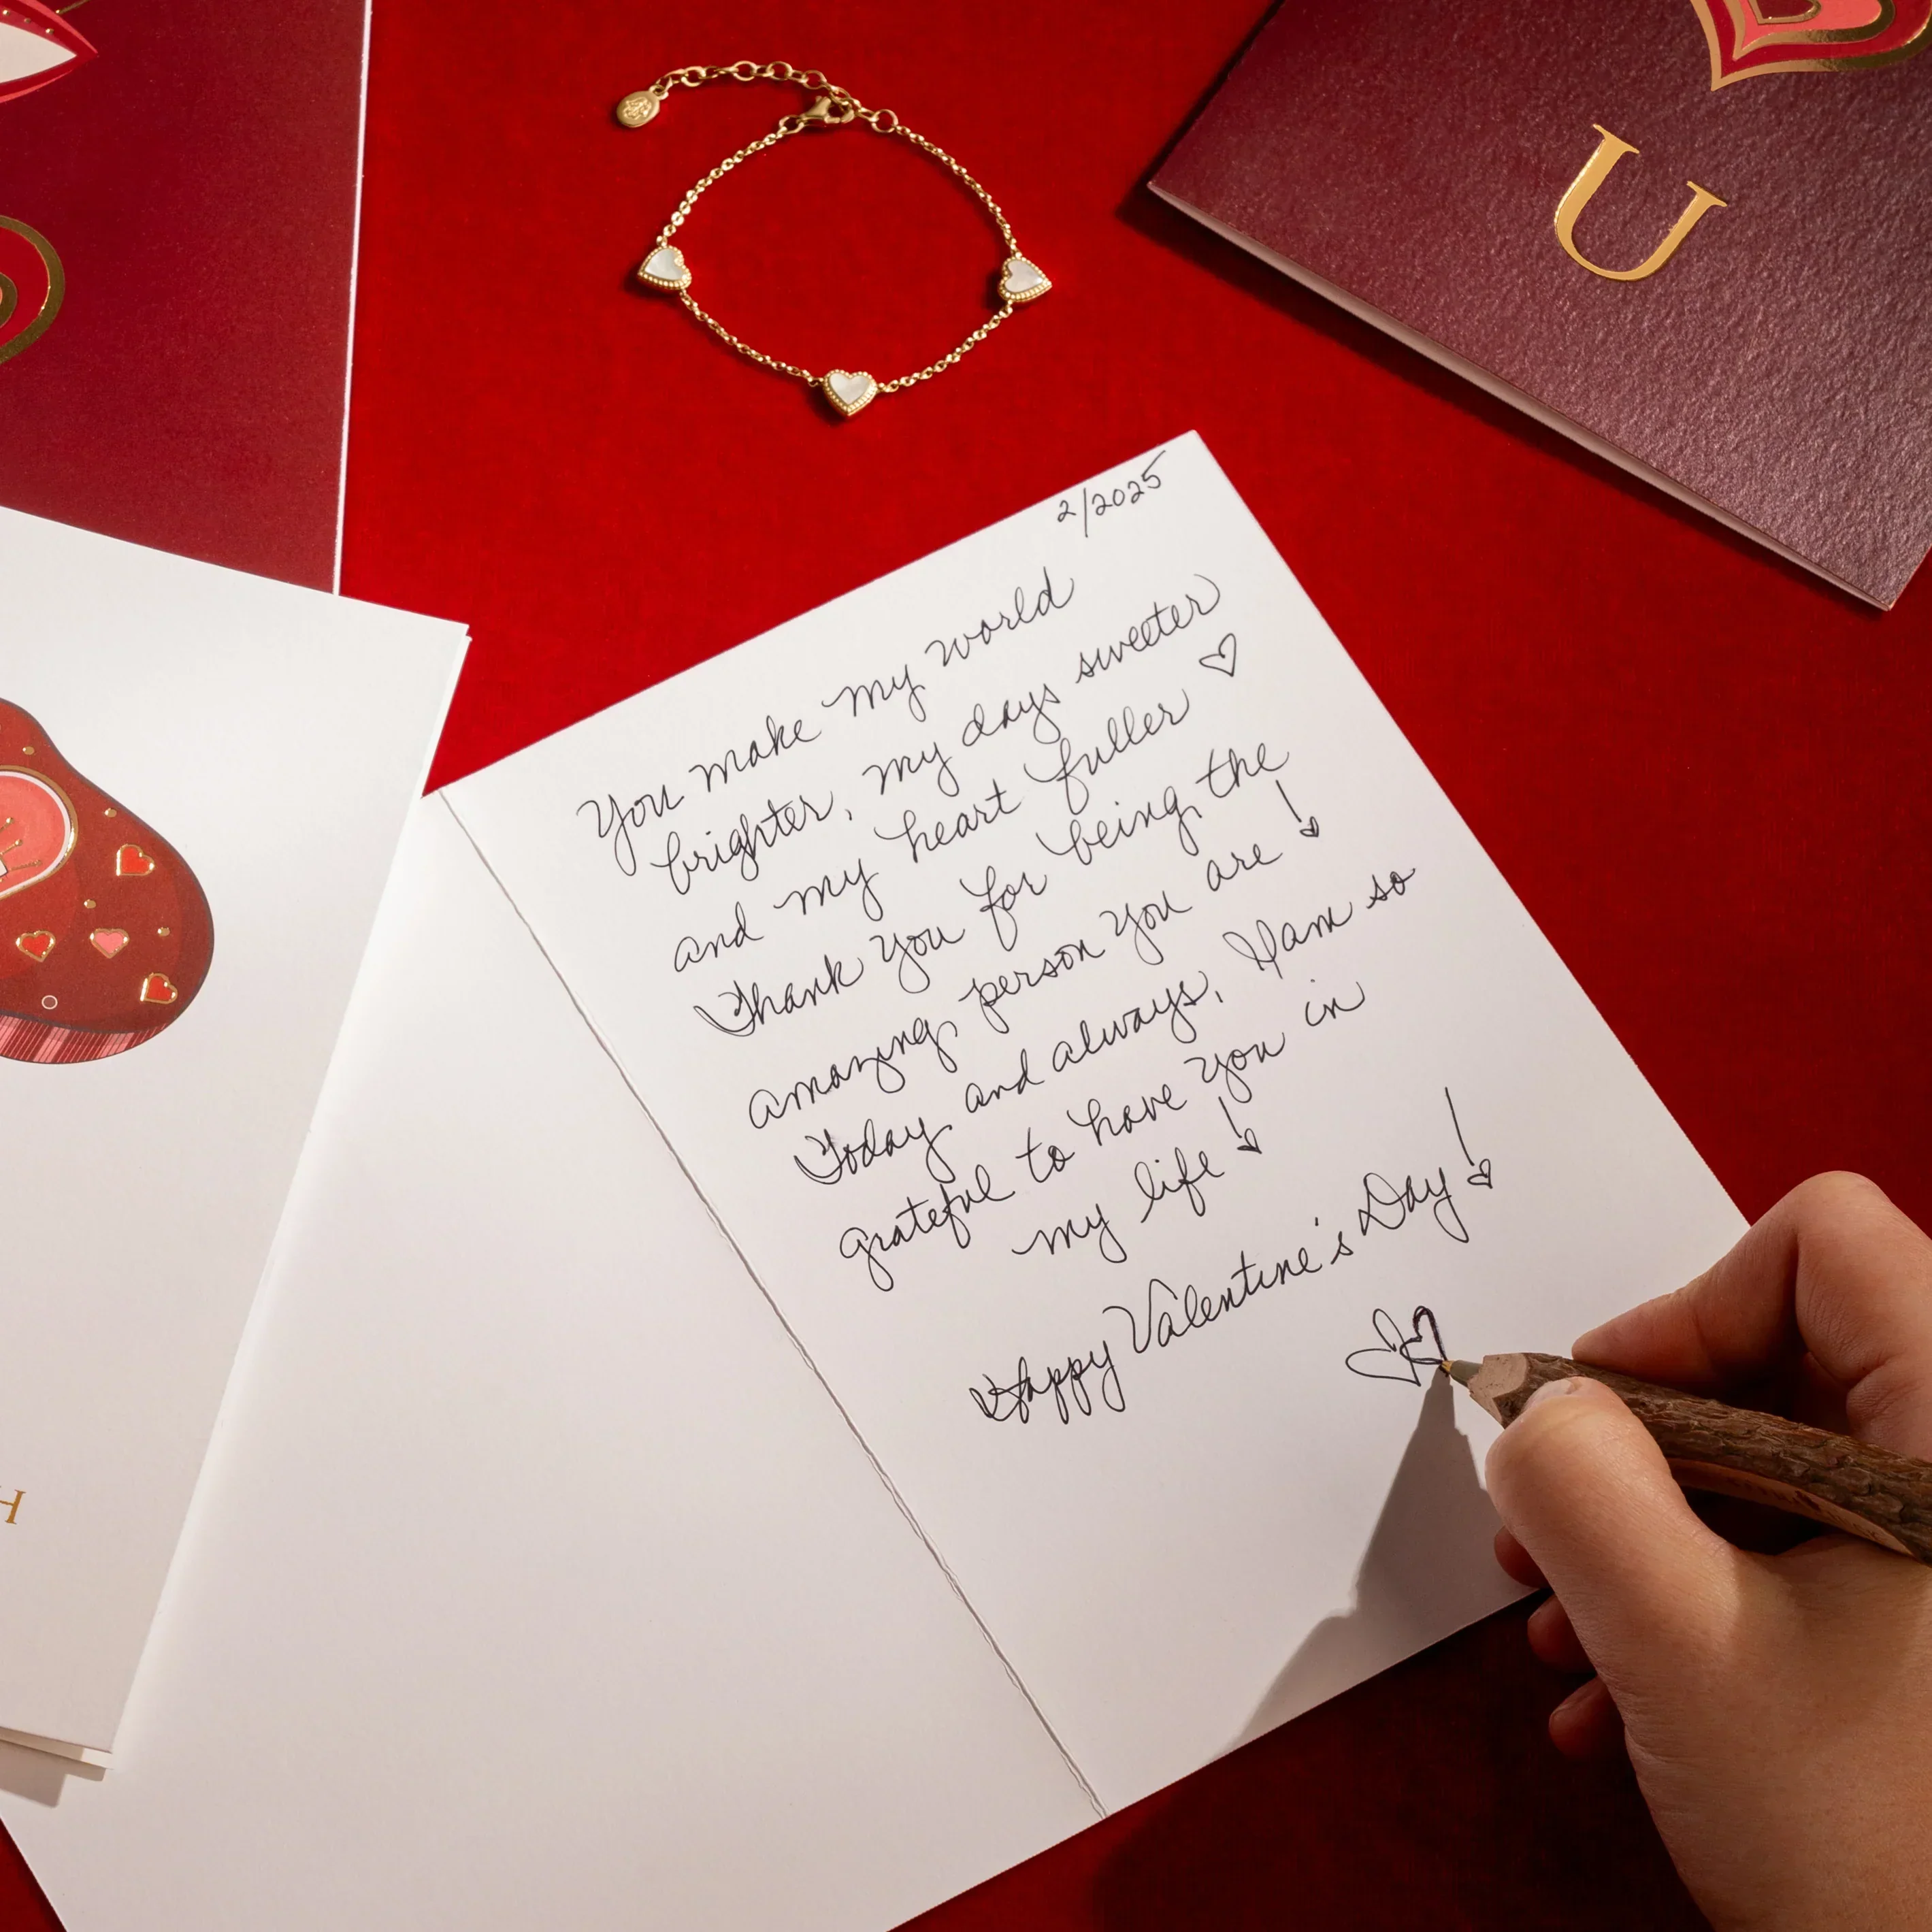 U
2/2025
You make my world
brighter, my days sweeter
and my heart fuller ♡
Thank you for being the
amazing person you are!
Today and always, I am so
grateful to have you in
my life!
Happy Valentine's Day!
H